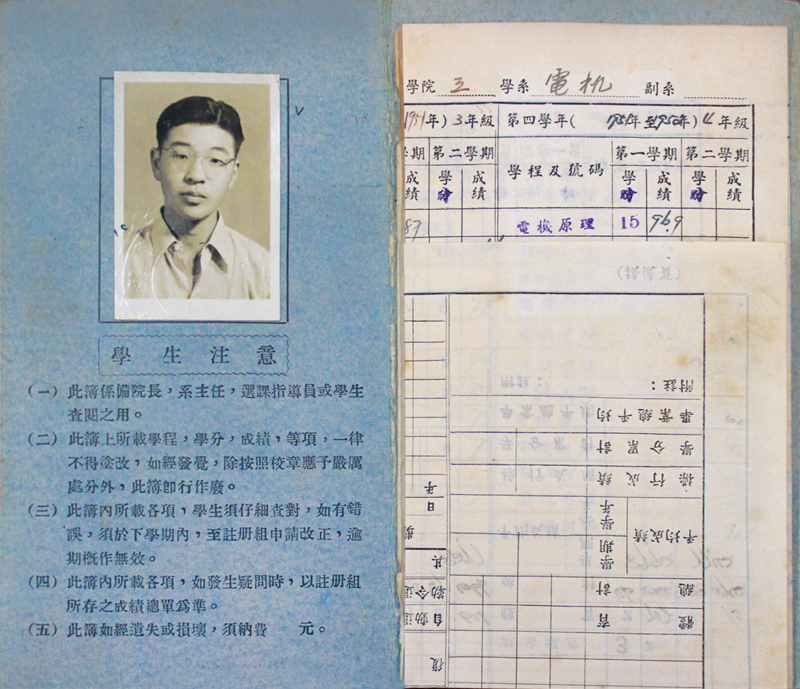 學生注意
(一) 此簿係備院長，系主任，選課指導員或學生
查閱之用。
(二) 此簿上所載學程，學分，成績，等項，一律
不得塗改，如經發覺，除按照校章應予嚴厲
處分外，此簿卽行作廢。
(三) 此簿內所載各項，學生須仔細查對，如有錯
誤，須於下學期內，至註册組申請改正，逾
期槪作無效。
(四) 此簿內所載各項，如發生疑問時，以註册組
所存之成績總單爲準。
(五) 此簿如經遺失或損壞，須納費 元。
學院 工 學系 電机 副系
1951年) 3年級 第四學年( 1951年至1952年) 4年級
學期 第二學期 學程及號碼 第一學期 第二學期
成績 學分 成績 學分 成績 學分 成績
87 電機原理 15 96.9
附註：
畢業總平均
學分累計
操行成績
平均成績
學年
學期
總計
體育